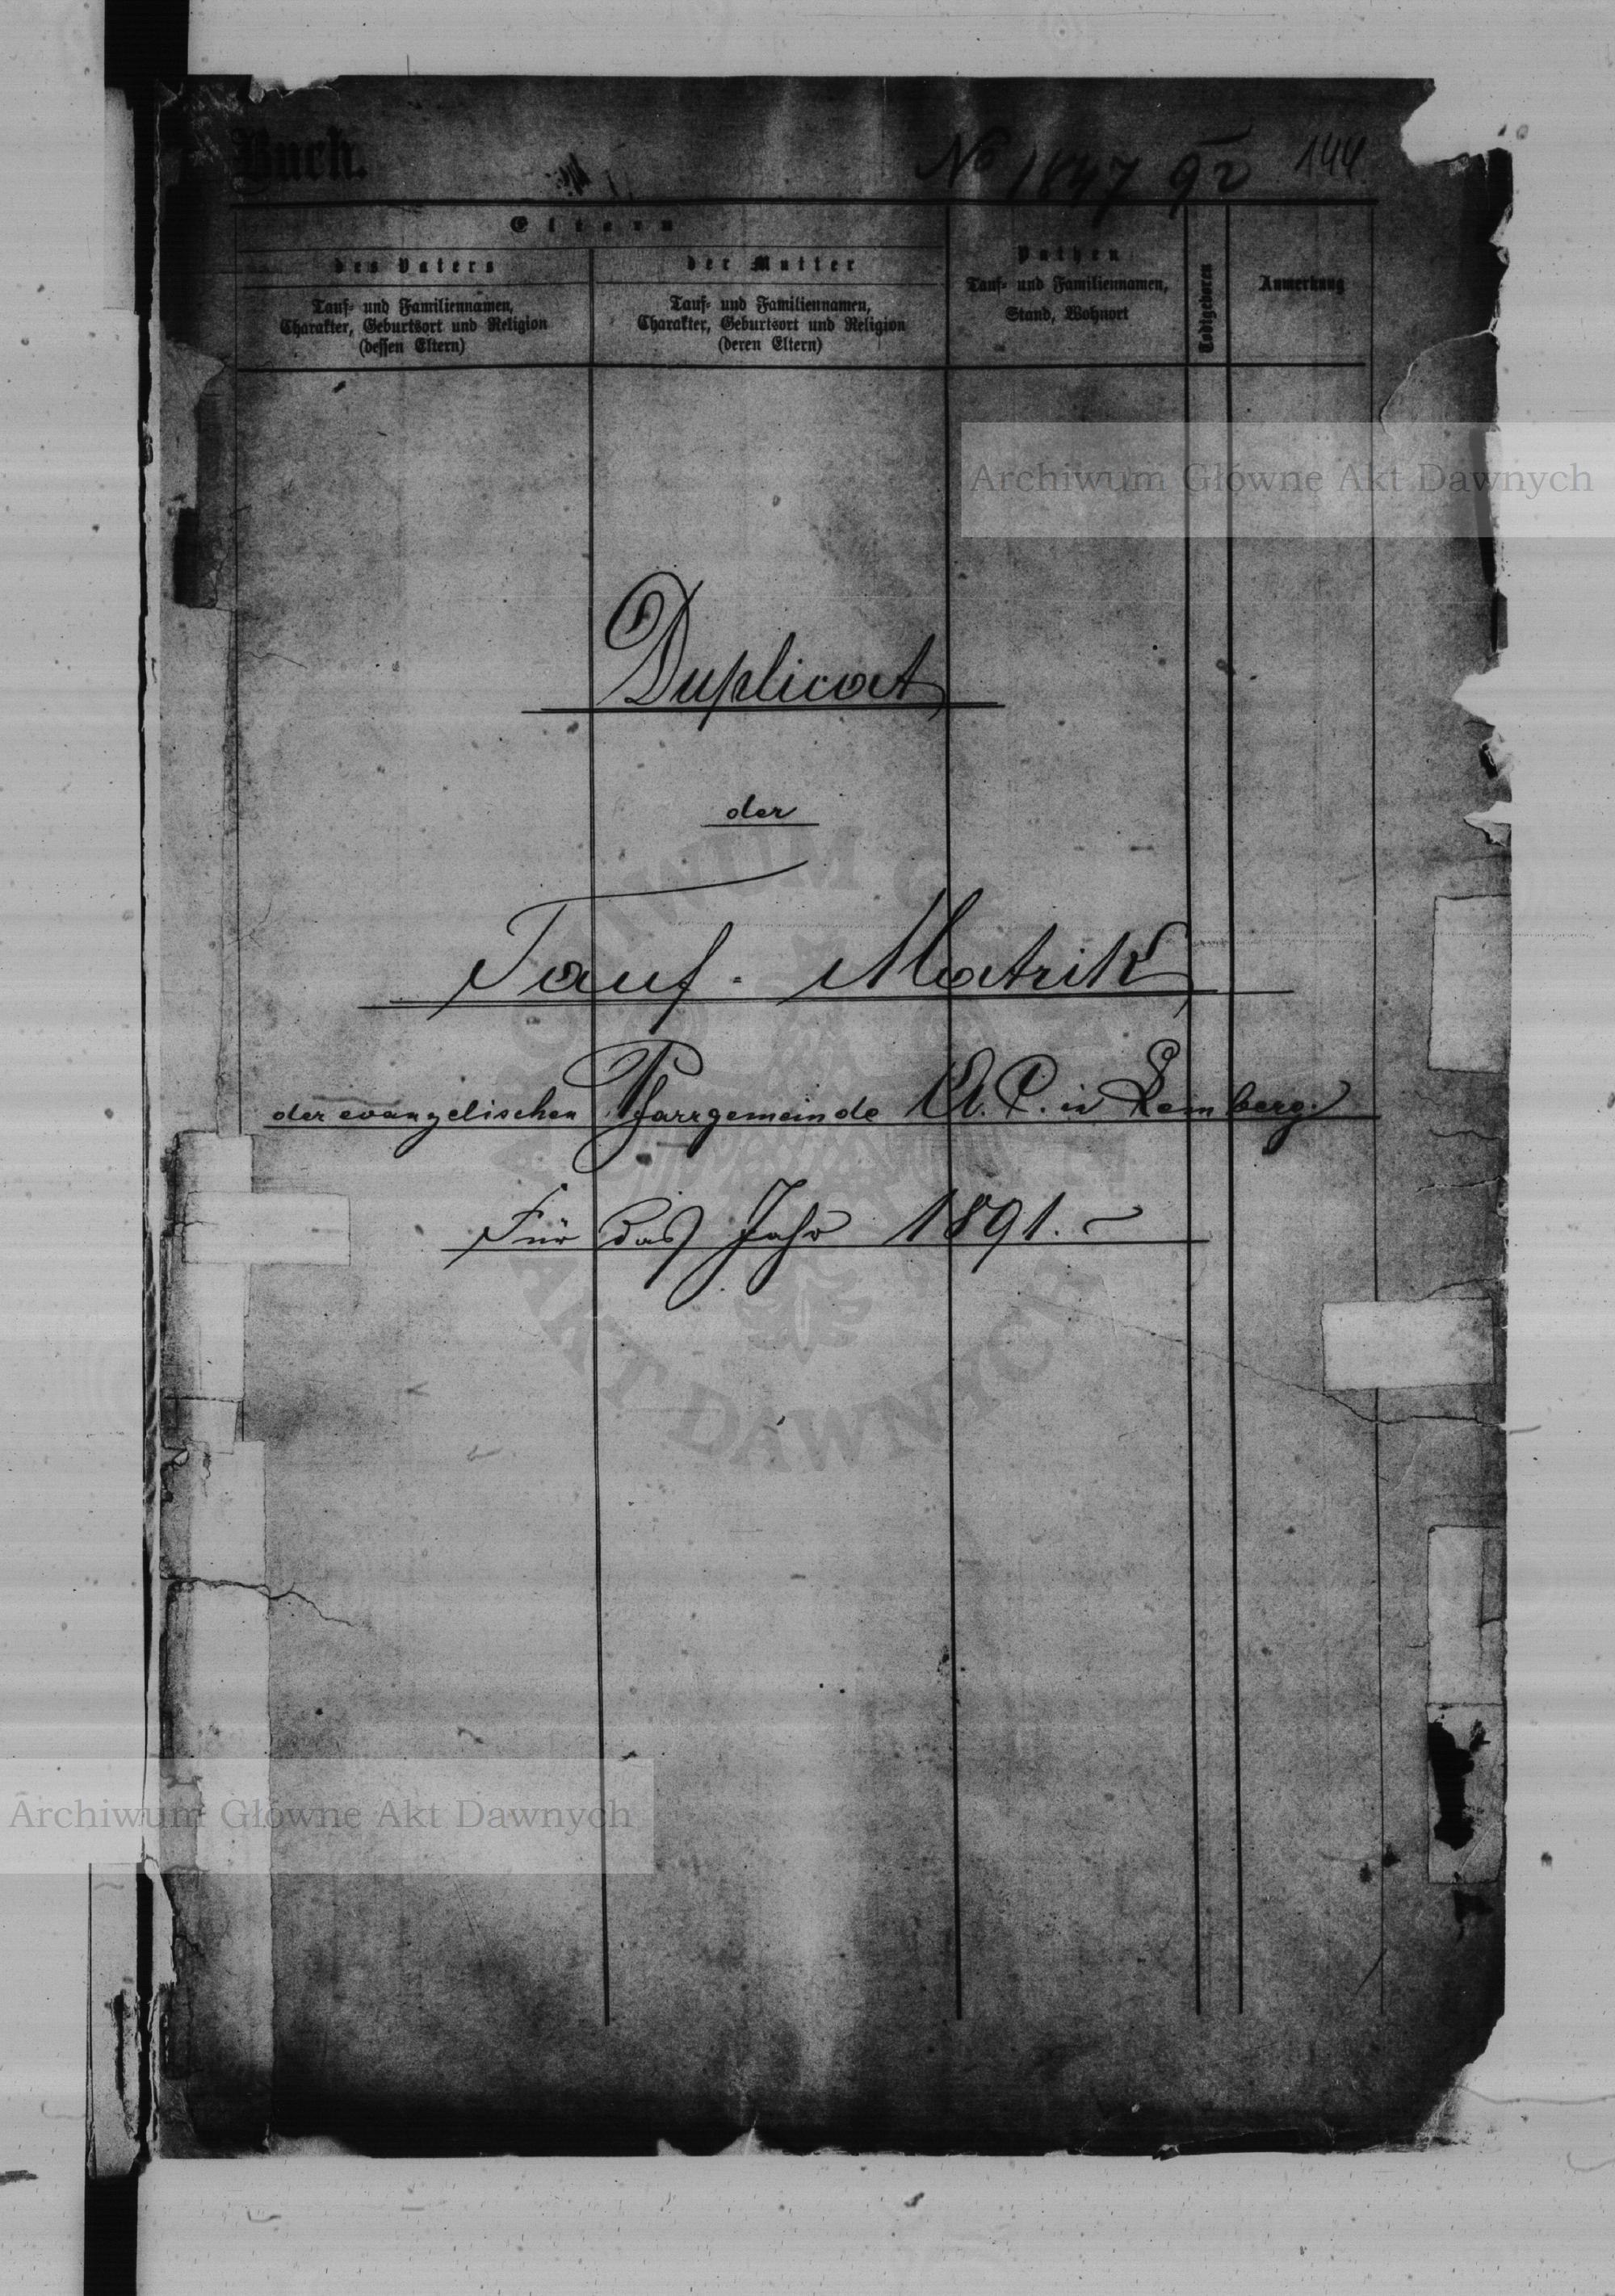 Buch.
No 1847 92 144
Eltern
des Vaters
der Mutter
Pathen
Todtgeboren
Anmerkung
Tauf- und Familiennamen,
Charakter, Geburtsort und Religion
(dessen Eltern)
Tauf- und Familiennamen,
Charakter, Geburtsort und Religion
(deren Eltern)
Tauf- und Familiennamen,
Stand, Wohnort
Archiwum Główne Akt Dawnych
Duplicat
der
Tauf- Matrik
der evangelischen Pfarrgemeinde A. C. in Lemberg.
Für das Jahr 1891. ~
ARCHIWUM GŁÓWNE
AKT DAWNYCH
Archiwum Główne Akt Dawnych